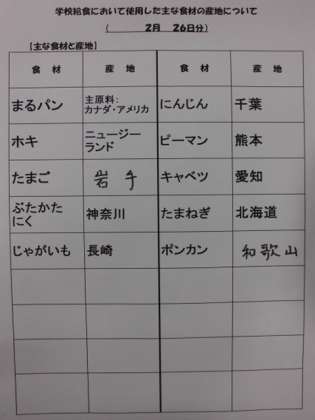 学校給食において使用した主な食材の産地について
( 2月 26日分)
【主な食材と産地】
食 材 産 地 食 材 産 地
まるパン 主原料:
カナダ・アメリカ にんじん 千葉
ホキ ニュージー
ランド ピーマン 熊本
たまご 岩手 キャベツ 愛知
ぶたかた
にく 神奈川 たまねぎ 北海道
じゃがいも 長崎 ポンカン 和歌山